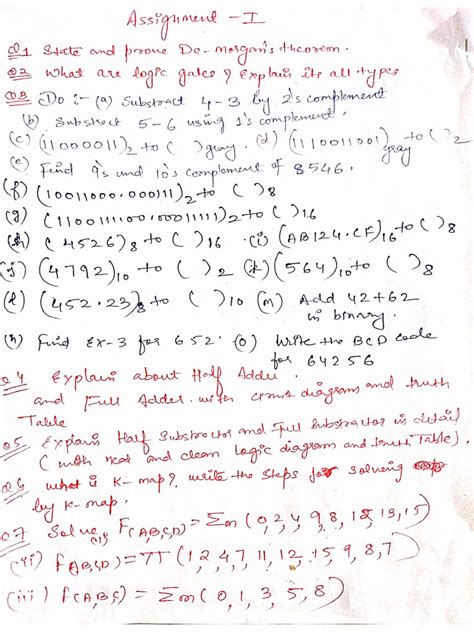 Assignment - I
Q1 State and prove De-morgan's theorem.
Q2 What are logic gates? Explain its all types
Q3 Do :- (a) Substract 4-3 by 2's complement
(b) Substract 5-6 using 1's complement.
(c) (11000011)2 to ( )gray. (d) (111011001)gray to ( )2
(e) Find 9's and 10's complement of 8546.
(f) (10011000.000111)2 to ( )8
(g) (1100111100.001111)2 to ( )16
(h) (4526)8 to ( )16 (i) (AB124.CF)16 to ( )8
(j) (4792)10 to ( )2 (k) (564)10 to ( )8
(l) (452.23)8 to ( )10 (m) Add 42+62
in binary.
(n) Find EX-3 for 652. (o) Write the BCD code
for 64256
Q4 Explain about Half Adder
and Full Adder. with circuit diagram and truth
Table
Q5 Explain Half Substractor and Full Substractor in detail
(with neat and clean logic diagram and truth Table).
Q6 what is K-map? write the steps for solving
by K-map.
Q7 Solve, (i) F(A,B,C,D) = Σm (0,2,4,9,8,12,13,15)
(ii) f(A,B,C,D) = π (1,2,4,7,11,12,15,9,8,7)
(iii) f(A,B,C) = Σm (0,1,3,5,8)